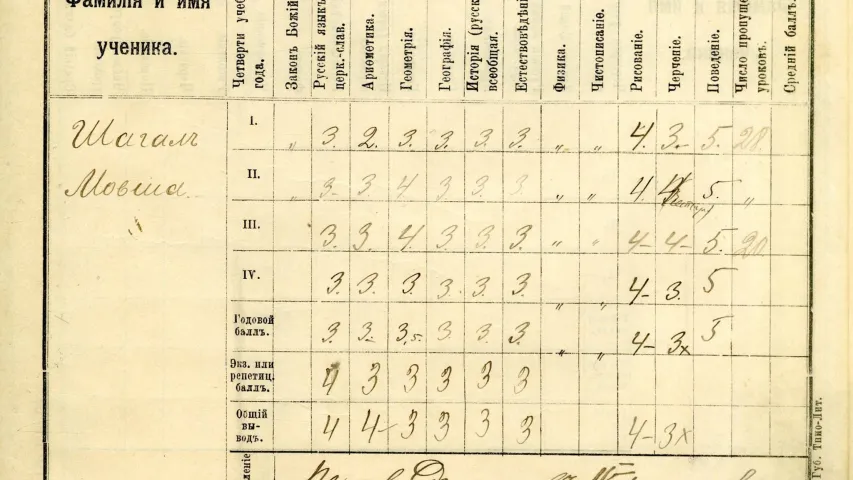 Фамилія и имя
ученика.
Четверти учеб
года.
Законъ Божій
Русскій языкъ
церк.-слав.
Ариѳметика.
Геометрія.
Географія.
Исторія (русск
всеобщая.
Естествовѣдѣні
Физика.
Чистописаніе.
Рисованіе.
Черченіе.
Поведеніе.
Число пропуще
уроковъ.
Средній баллъ.
Шагалъ
Мовша
I. „ 3. 2. 3. 3. 3. 3. „ „ 4. 3. 5. 28.
II. „ 3 3 4 3 3. 3 „ „ 4. 4 5. „
III. 3. 3. 4 3 3 3. „ „ 4 4 5. 20
IV. 3. 3. 3. 3. 3. 3. „ „ 4 3. 5
Годовой
баллъ. 3. 3. 3,5. 3 3. 3. „ „ 4 3x 5
Экз. или
репетиц.
баллъ. 4 3 3 3 3 3
Общій
вы-
водъ. 4 4 3 3 3 3 4 3x
Губ. Типо-Лит.